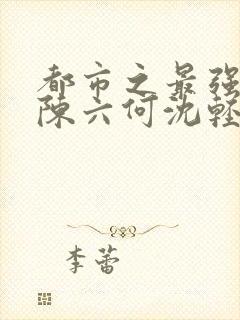 都市之最强
陈六何沈轻
李蕾